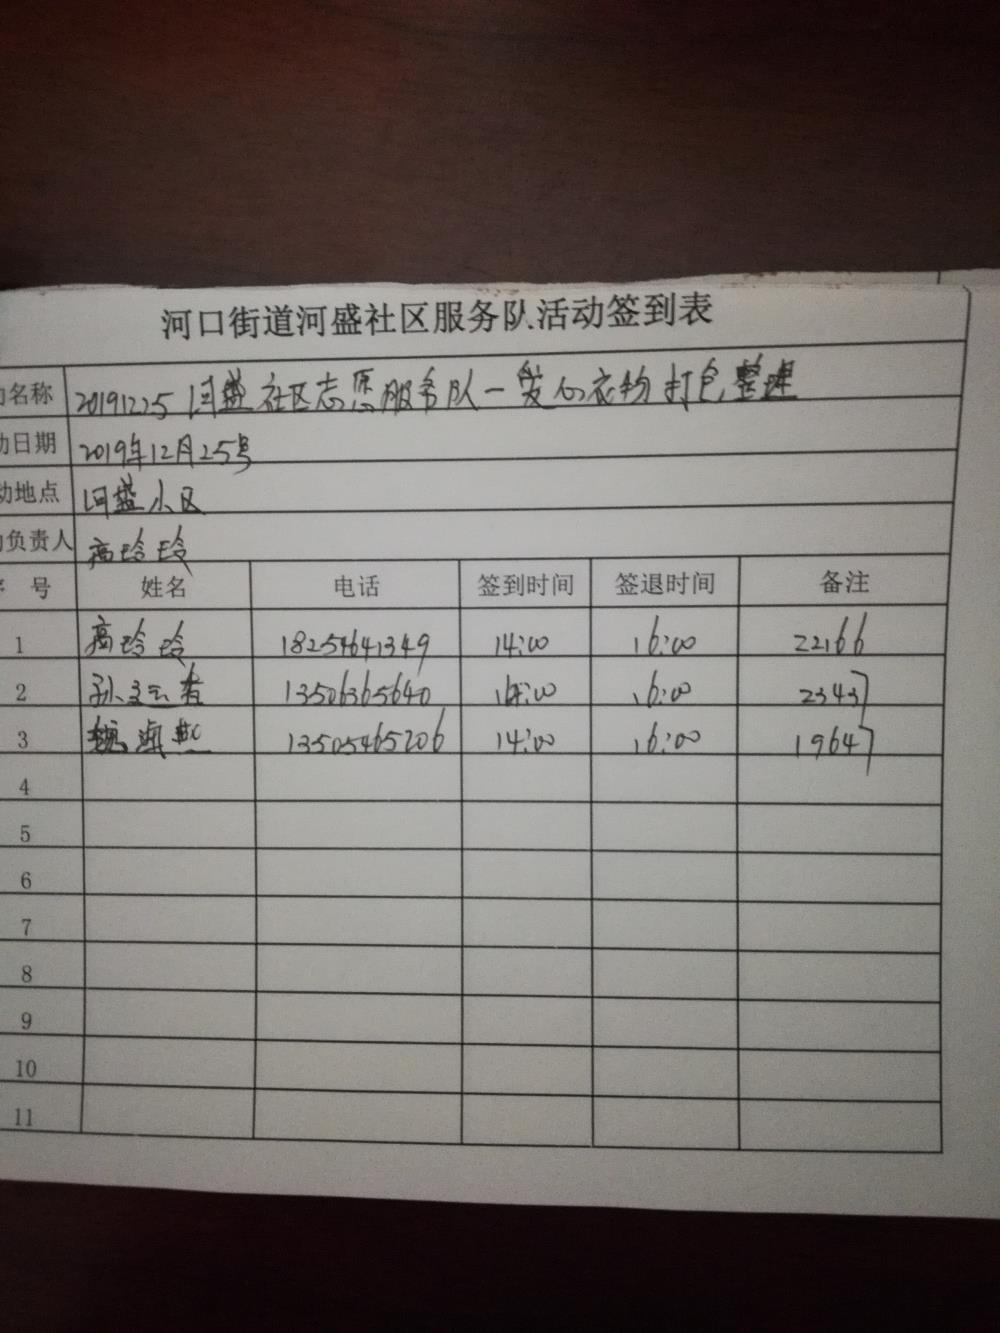 河口街道河盛社区服务队活动签到表
名称 20191225河盛社区志愿服务队一爱心衣物打包整理
动日期 2019年12月25号
动地点 河盛小区
负责人 高玲玲
号 姓名 电话 签到时间 签退时间 备注
1 高玲玲 18254641349 14:00 16:00 22166
2 13506365640 14:00 16:00 23437
3 13505465206 14:00 16:00 19647
4
5
6
7
8
9
10
11